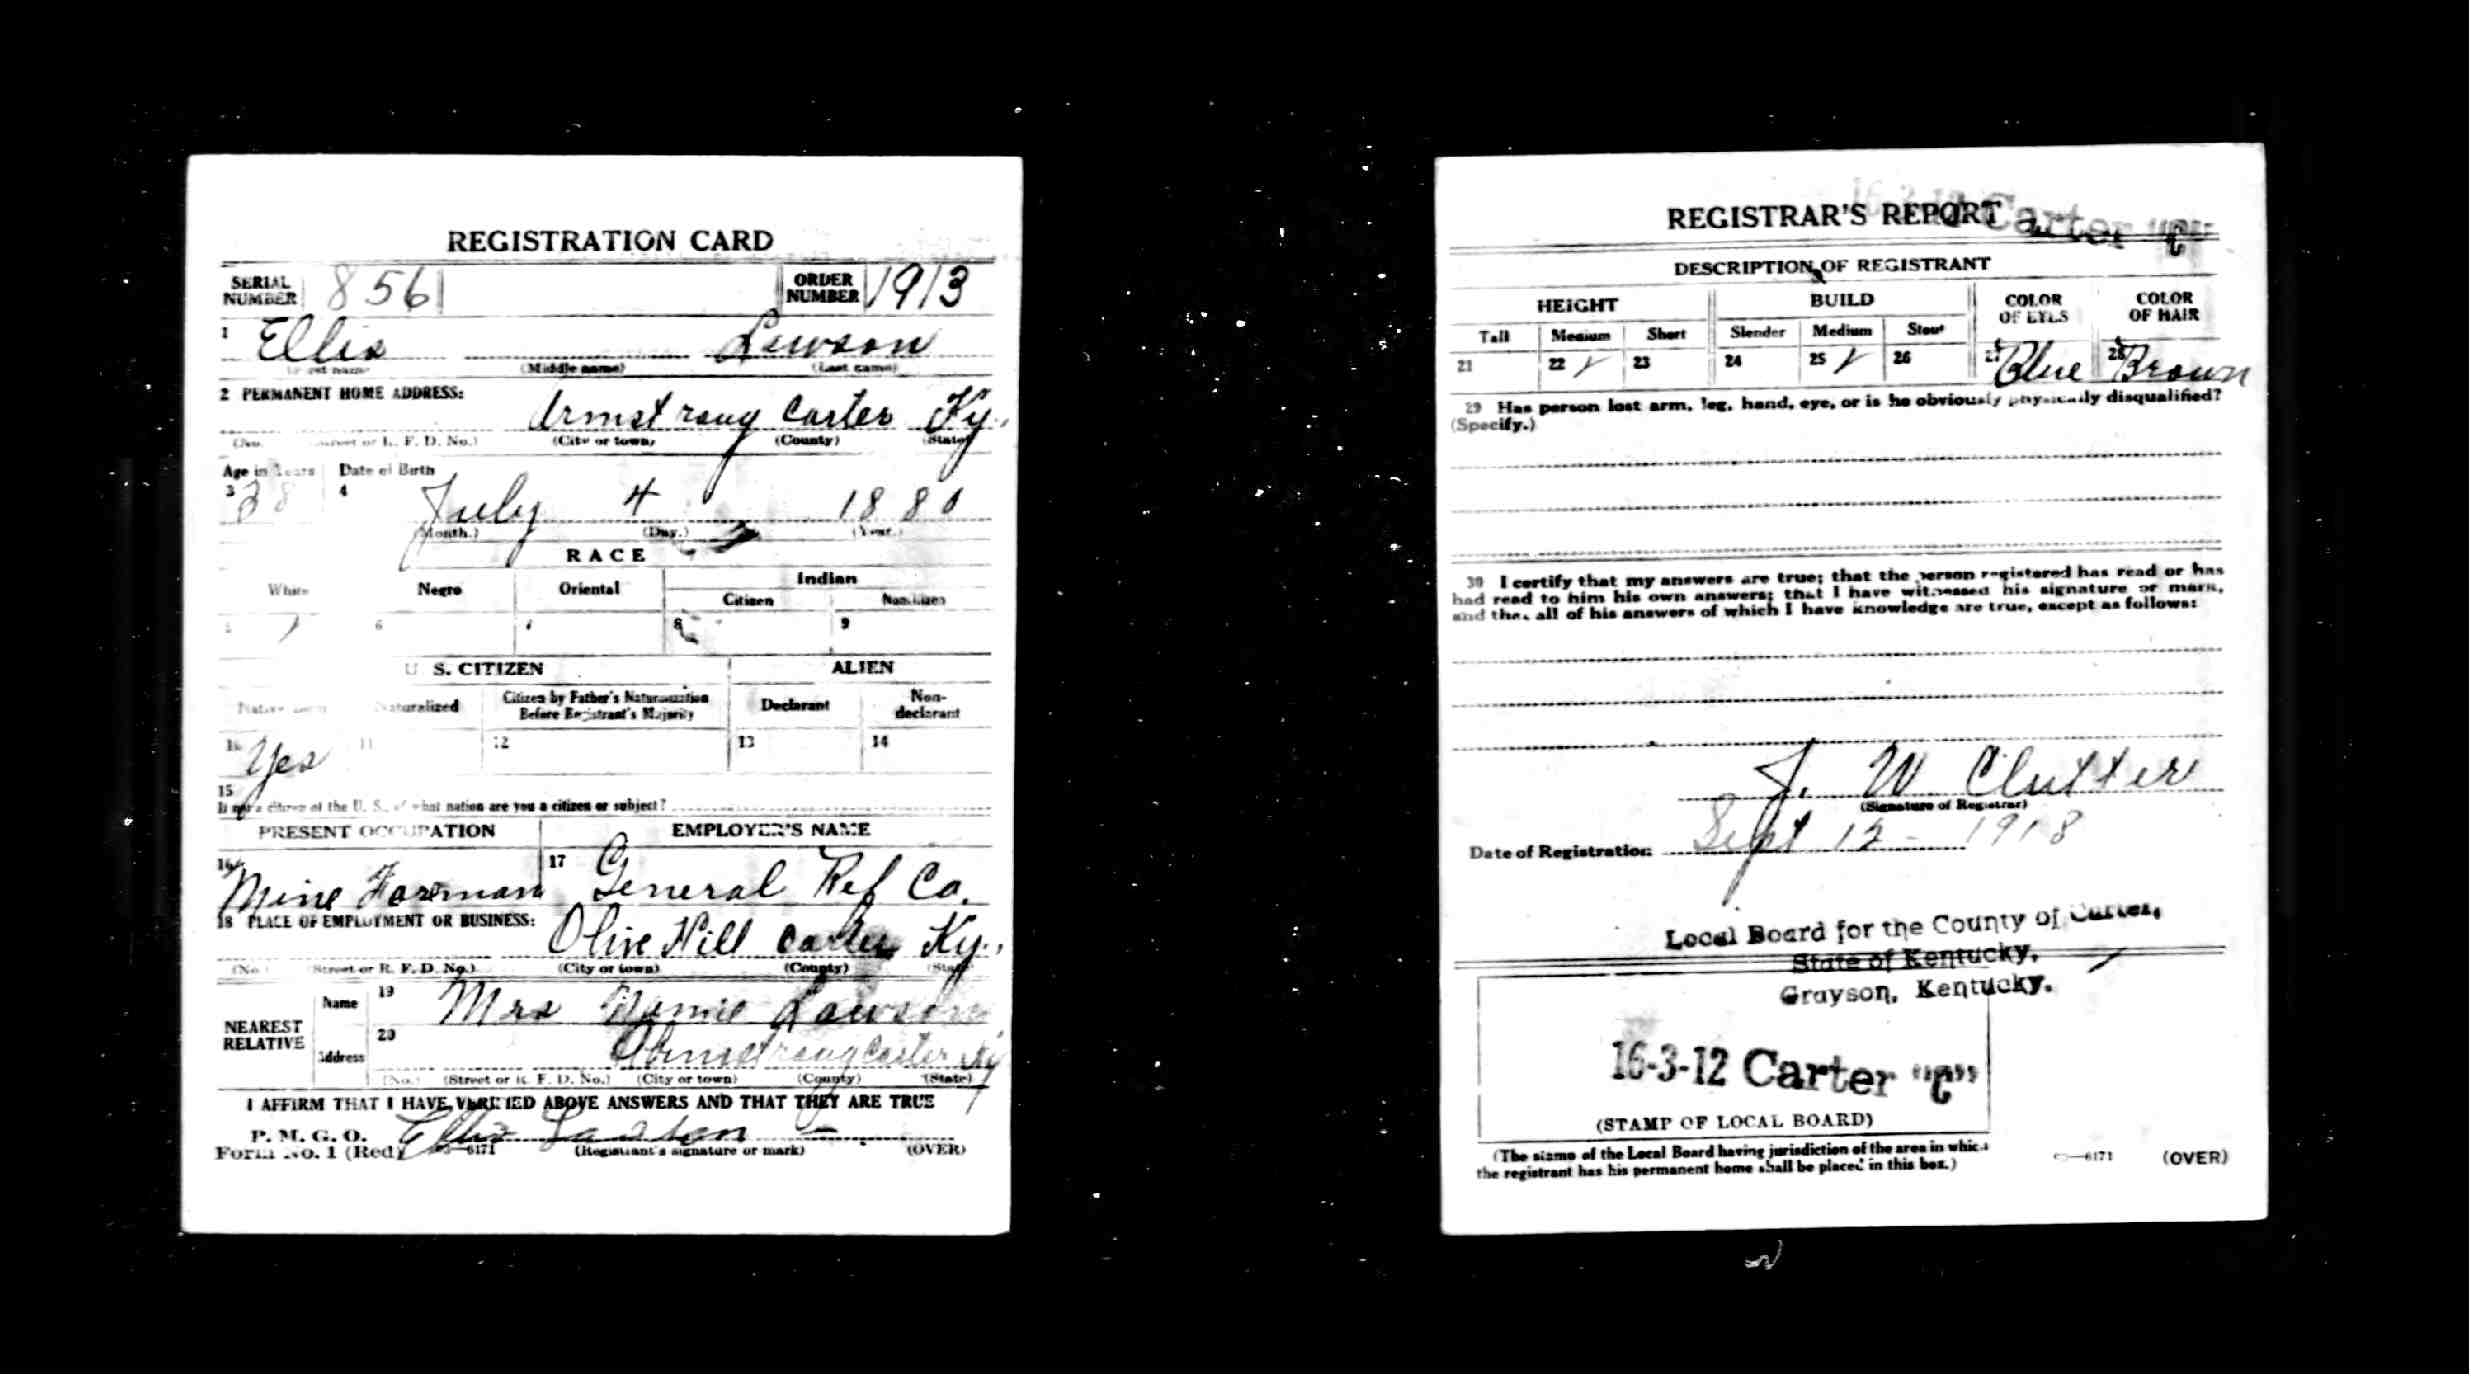 REGISTRATION CARD
SERIAL NUMBER 856 ORDER NUMBER 1913
1 Ellis Lewson
(Middle name) (Last name)
2 PERMANENT HOME ADDRESS:
Armstrong Carter Ky.
(No.) (Street or R. F. D. No.) (City or town) (County) (State)
Age in Years Date of Birth
3 38 4 July 4 1880
(Month.) (Day.) (Year.)
RACE
White Negro Oriental Indian
Citizen Noncitizen
5 6 7 8 9
U. S. CITIZEN ALIEN
Native Born Naturalized Citizen by Father's Naturalization Before Registrant's Majority Declarant Non-declarant
10 Yes 11 12 13 14
15
If not a citizen of the U. S., of what nation are you a citizen or subject?
PRESENT OCCUPATION EMPLOYER'S NAME
16 Mine Forman 17 General Ref Co.
18 PLACE OF EMPLOYMENT OR BUSINESS:
Olive Hill Carter Ky.
(No.) (Street or R. F. D. No.) (City or town) (County) (State)
NEAREST RELATIVE Name 19 Mrs Lawson
Address 20 Armstrong Carter Ky
(No.) (Street or R. F. D. No.) (City or town) (County) (State)
I AFFIRM THAT I HAVE VERIFIED ABOVE ANSWERS AND THAT THEY ARE TRUE
P. M. G. O.
Form No. 1 (Red) 6171 Ellis (Registrant's signature or mark) (OVER)
REGISTRAR'S REPORT
16-3-12 Carter "C"
DESCRIPTION OF REGISTRANT
HEIGHT BUILD COLOR OF EYES COLOR OF HAIR
Tall Medium Short Slender Medium Stout
21 22 ✓ 23 24 25 ✓ 26 27 Blue 28 Brown
29 Has person lost arm, leg, hand, eye, or is he obviously physically disqualified?
(Specify.)
30 I certify that my answers are true; that the person registered has read or has
had read to him his own answers; that I have witnessed his signature or mark,
and that all of his answers of which I have knowledge are true, except as follows:
J. W Clutter
(Signature of Registrar)
Date of Registration Sept 12 - 1918
Local Board for the County of Carter,
State of Kentucky,
Grayson, Kentucky.
16-3-12 Carter "C"
(STAMP OF LOCAL BOARD)
(The stamp of the Local Board having jurisdiction of the area in which
the registrant has his permanent home shall be placed in this box.)
6171 (OVER)